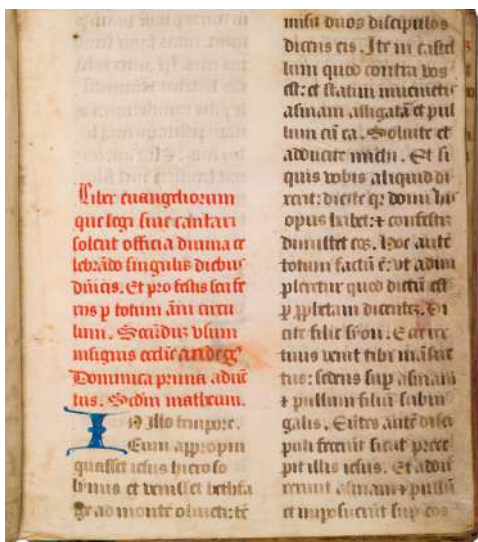 Liber euangeliorum
que legi siue cantari
solent officia diuina ce
lebrādo singulis diebus
diuīcis. Et pro festis seu fe
rijs ꝑ totum āni circu
lum. Scd̄m vsum
insignis ecclīe andeg
Dominica prima aduē
tus. Scd̄m matheum.
IN illo tempore.
Cum appropin
quasset iesus hieroso
limis et venisset bethfa
ge ad montē oliueti: tc̄
misit duos discipulos
dicens eis. Ite in castel
lum quod contra vos
est: et statim inuenietis
asinam alligatā et pul
lum cū ea. Soluite et
adducite michi. Et si
quis vobis aliquid di
xerit: dicite qꝛ domīs hijs
opus habet: ⁊ confestī
dimittet eos. Hoc autē
totum factū ē: vt adim
pleretur quod dictū est
ꝑ ꝓphetam dicentē. Di
cite filie syon. Ecce rex
tuus venit tibi māsue
tus: sedens sup asinam
⁊ pullum filiū subiu
galis. Eūtes autē disci
puli fecerūt sicut prece
pit illis iesus. Et addu
xerunt asinam ⁊ pullū
et imposuerūt sup eos